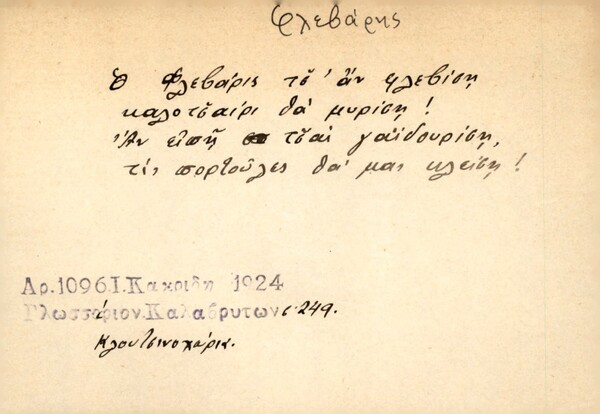 Φλεβάρης
Ὁ Φλεβάρις τσ' ἂν φλεβίση
καλοτσαίρι θὰ μυρίση!
Ἂν εἰπῆ τσαὶ γαϊδουρίση,
τὶς πορτοῦλες θὰ μας κλείση!
Αρ.1096 Ι. Κακριδη 1924
Γλωσσάριον Καλαβρυτων σ. 249.
Κλουτσινοχώρια.